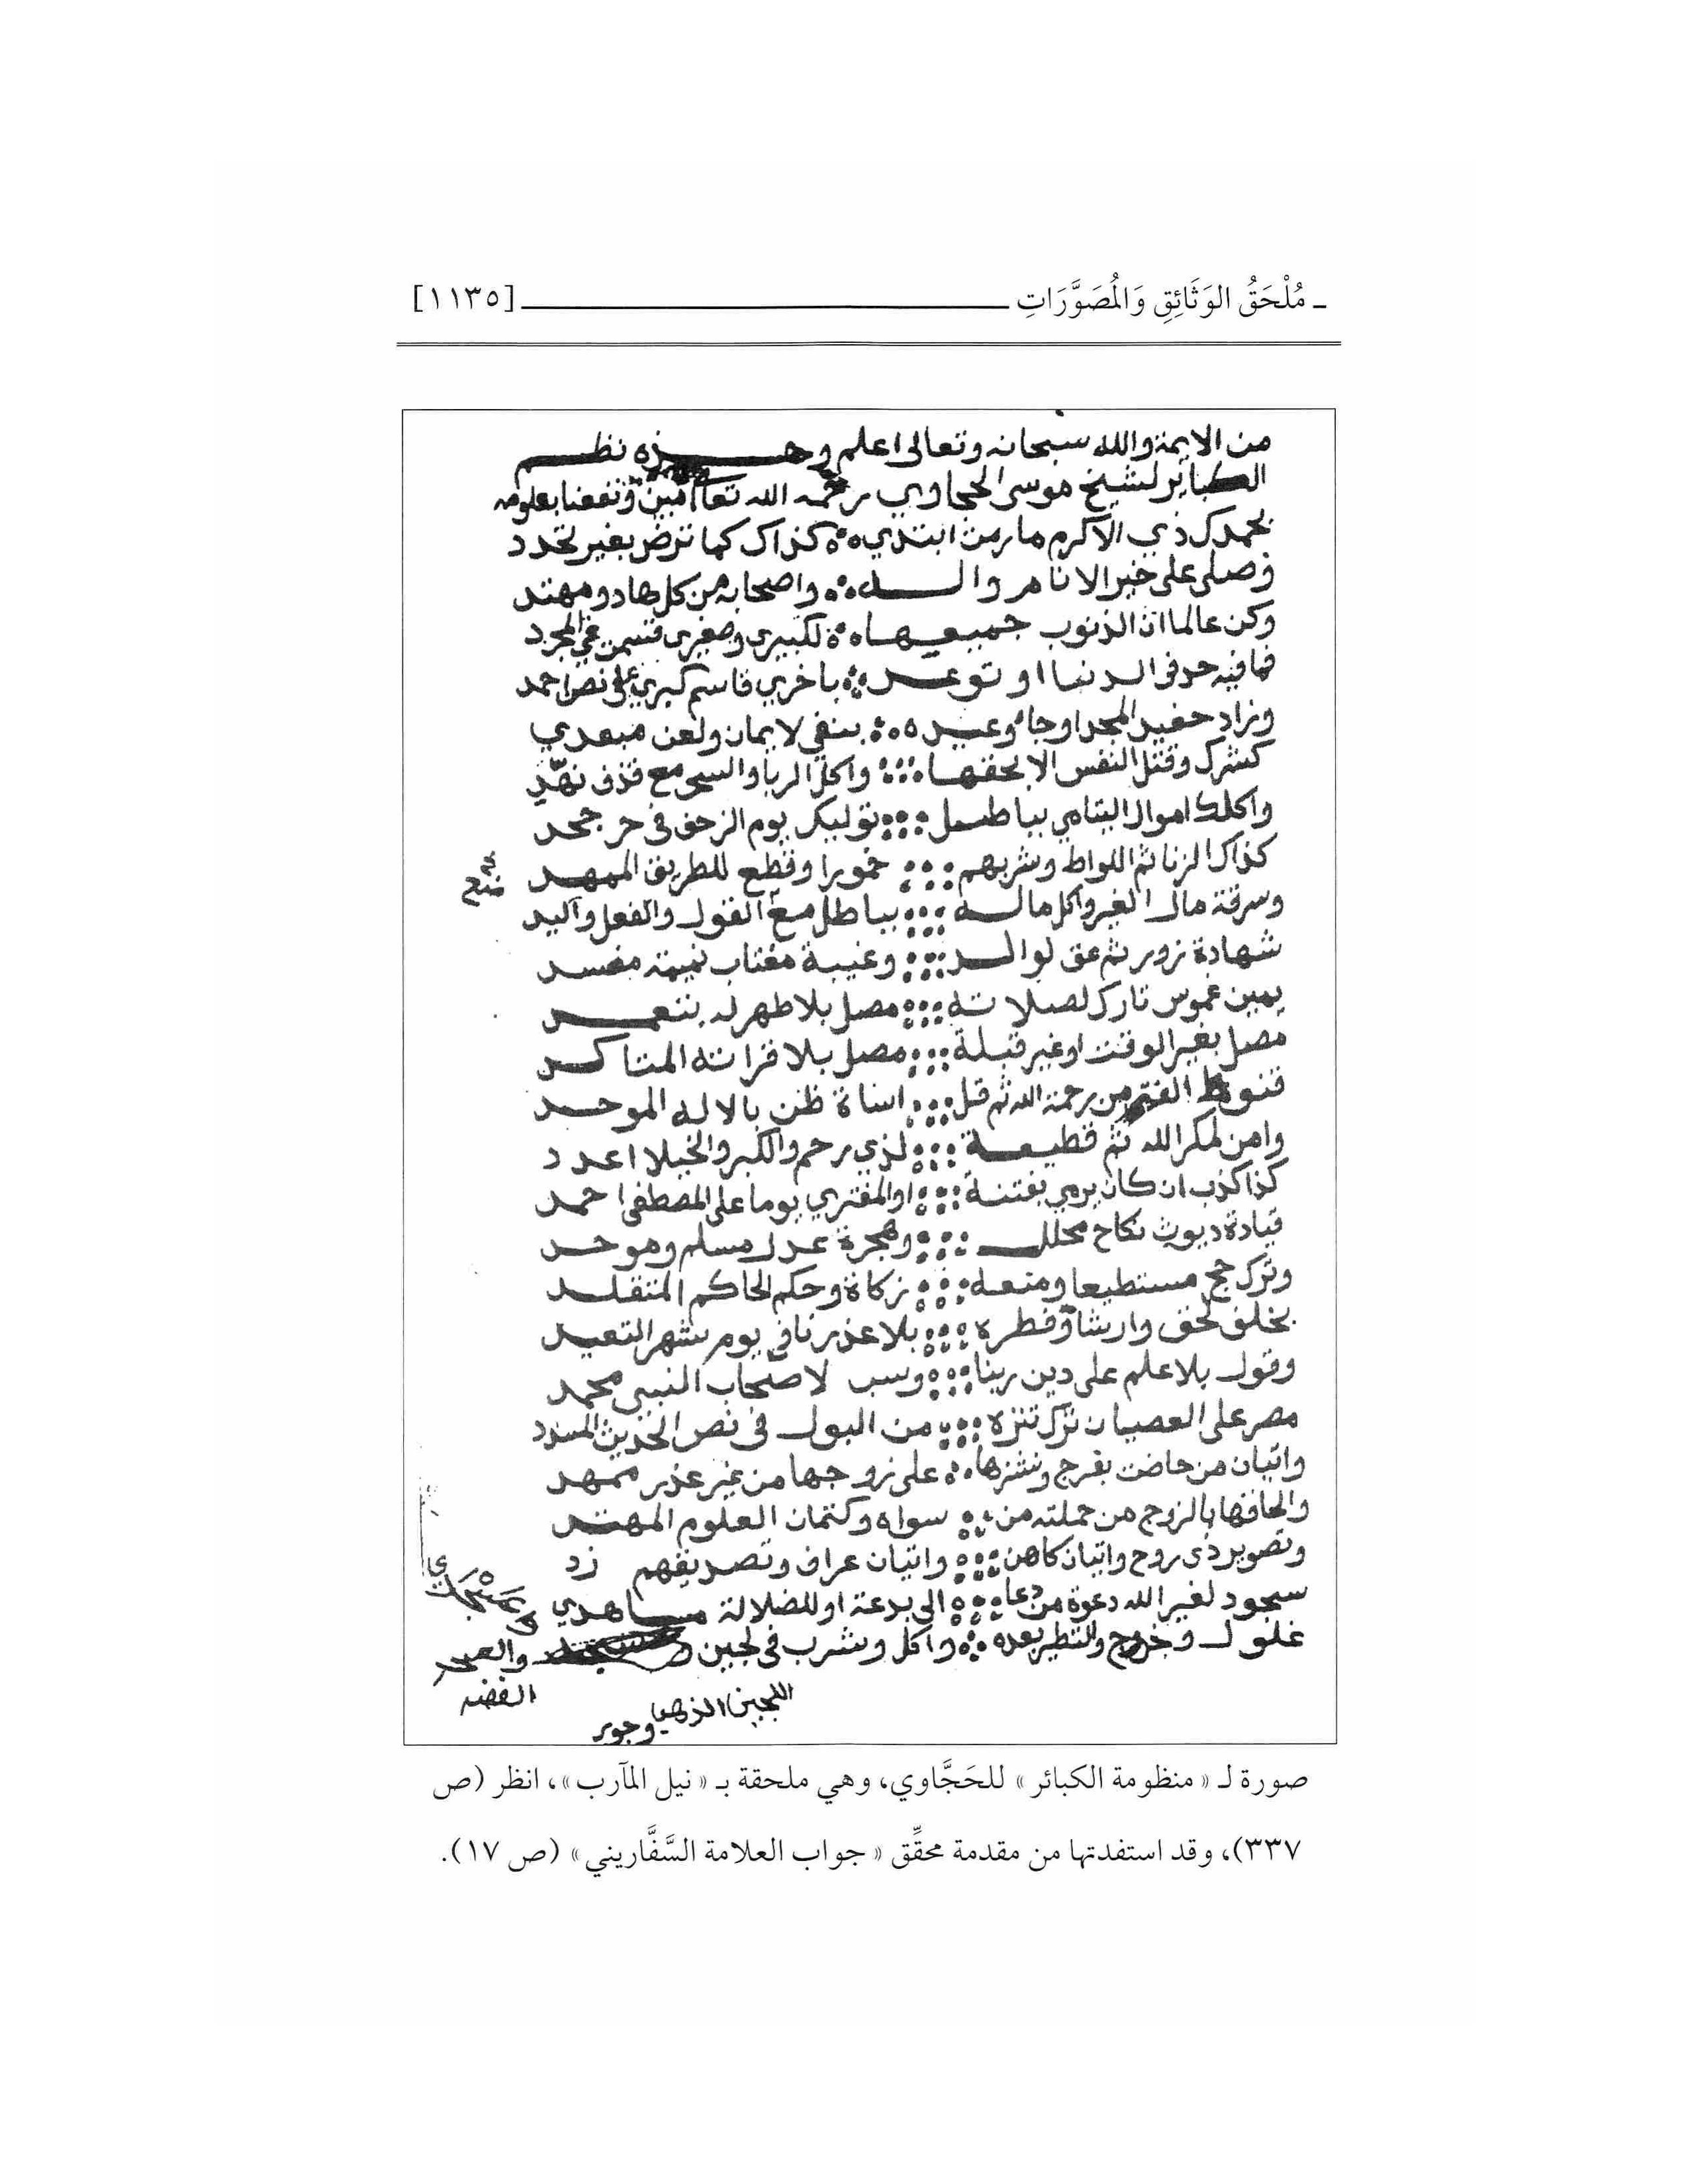 ـ مُلْحَقُ الوَثَائِقِ وَالمُصَوَّرَاتِ [١١٣٥]
من الايمة والله سبحانه وتعالى اعلم وهذه نظم
الكباير لشيخ موسى الحجاوي رحمه الله تعا امين ونفعنا بعلومه
بحمدك ذي الاكرم ما رمت ابتدي كذاك كما ترض بغير تحدد
وصلى على خير الانام واله واصحابه من كل هاد ومهتد
وكن عالما ان الذنوب جميعها لكبيرى وصغيرى قسمت في المجرد
فما فيه حد فى الدنيا او توعد باخري فاسم كبيري على نص احمد
وزاد حفيد المجد او جا وعيده بنفي لايمان ولعن مبعدي
كشرك وقتل النفس الا بحقها واكل الربا والسحر مع قذف نهد
واكلك اموال اليتامي بباطل توليك يوم الزحف فى حر جحد
كذاك الزنا ثم اللواط وشربهم خمورا وقطع للطريق الممهد
وسرقة مال الغير واكل ماله بباطل مع القول والفعل واليد
شهادة زور ثم عق لوالد وغيبة مغتاب نميمة مفسد
يمين غموس تارك لصلاته مصل بلا طهر له بتعمد
مصل بغير الوقت او غير قبلة مصل بلا قراته المتاكد
قنوط الفتى من رحمة الله ثم قل اساة ظن بالاله الموحد
وامن لمكر الله ثم قطيعة لذي رحم والكبر والخيلا اعدد
كذا كذب ان كان يرمي بفتنة او المفتري يوما على المصطفى احمد
قيادة ديوث نكاح محلل وهجرة عدل مسلم وموحد
وترك حج مستطيعا ومنعه زكاة وحكم الحاكم المتقلد
بخلف لحق وارتشا وفطره بلا عذرنا في يوم شهر التعبد
وقول بلا علم على دين ربنا وسب لاصحاب النبى محمد
مصر على العصيان ترك تنزه من البول فى نص الحديث المسدد
واتيان من حاضت بفرج ونشزها على زوجها من غير عذر ممهد
والحاقها بالزوج من حملته من سواه وكتمان العلوم المهتد
وتصوير ذى روح واتيان كاهن واتيان عراف وتصديقهم زد
سجود لغير الله دعوة من دعا الى بدعة او للضلالة ماهدي
غلول ونوح والتطير بعده واكل وشرب فى لجين
والعسجد
الفضه
اللجين الذهب
صورة لـ « منظومة الكبائر » للحَجَّاوي، وهي ملحقة بـ « نيل المآرب »، انظر (ص
٣٣٧)، وقد استفدتها من مقدمة محقِّق « جواب العلامة السَّفَّاريني » (ص ١٧).